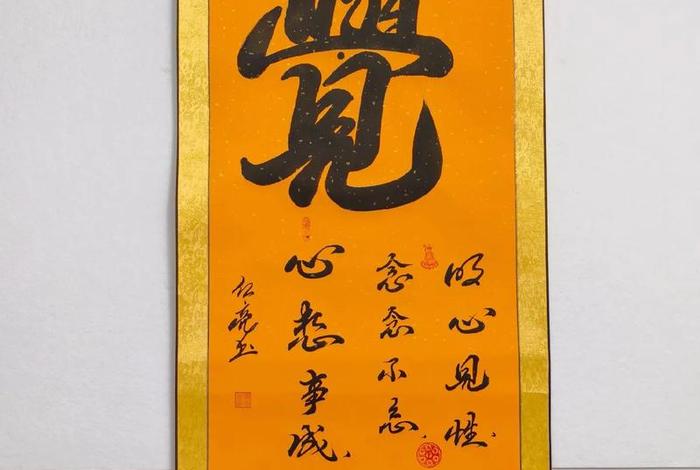 覺
明心見性、
念念不忘、
心想事成、
仁亮书